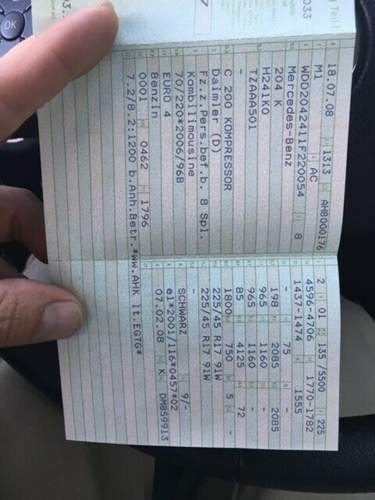 18.07.08 1313 AHB000176
M1 AC
WDD2042411F220054 8
Mercedes-Benz
204 K
H2A1K0
TZAAA501
-
C 200 KOMPRESSOR
Daimler (D)
Fz.z.Pers.bef.b. 8 Spl.
Kombilimousine
70/220*2006/96B
EURO 4
Benzin
0001 0462 1796
7.2/8.2:1200 b.Anh.Betr.*ww.AHK lt.EGTG*
2 01 135/5500 225
4596-4706 1770-1782
1437-1474 1555
- 75 -
198 2085 2085
965 1160 -
965 1160 -
85 4125 72
1800 750 5 -
225/45 R17 91W
225/45 R17 91W
-
SCHWARZ 9/-
e1*2001/116*0457*02
07.02.08 K DM859913
033
OK